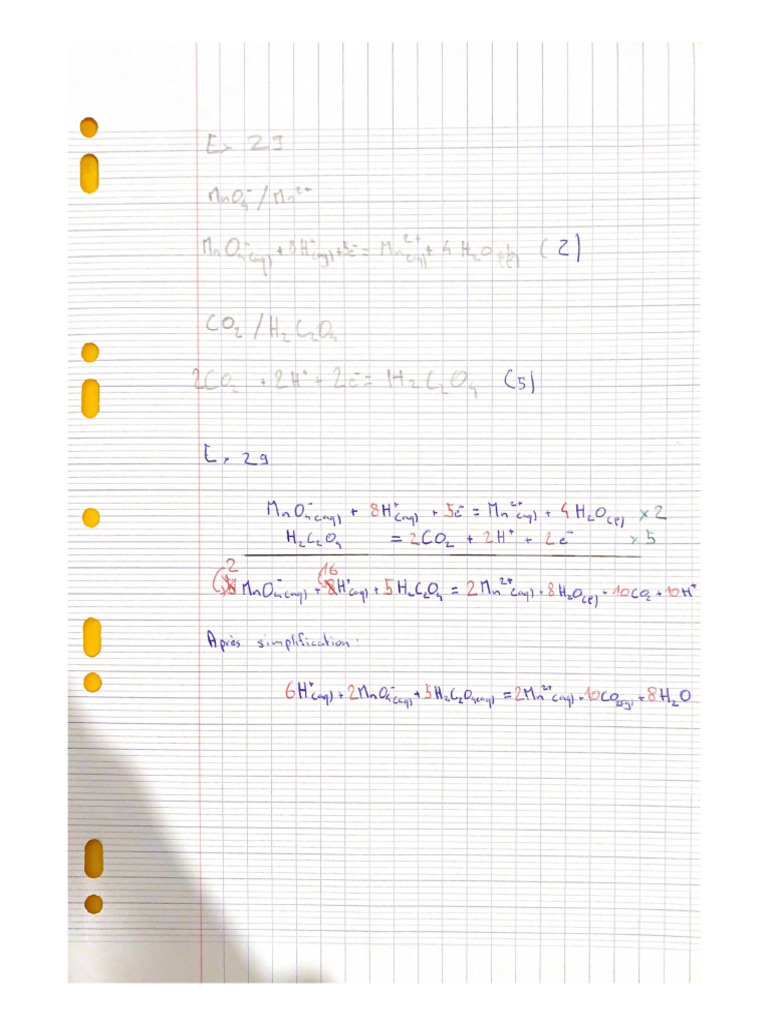 Ex 29
MnO₄⁻/Mn²⁺
MnO₄⁻(aq) + 8H⁺(aq) + 5e⁻ = Mn²⁺(aq) + 4 H₂O(l) (2)
CO₂ / H₂C₂O₄
2CO₂ + 2H⁺ + 2e⁻ = H₂C₂O₄ (5)
Ex 29
MnO₄⁻(aq) + 8H⁺(aq) + 5e⁻ = Mn²⁺(aq) + 4 H₂O(l) × 2
H₂C₂O₄ = 2CO₂ + 2H⁺ + 2e⁻ × 5
2 MnO₄⁻(aq) + 16 H⁺(aq) + 5H₂C₂O₄ = 2Mn²⁺(aq) + 8H₂O(l) + 10CO₂ + 10H⁺
Après simplification :
6H⁺(aq) + 2MnO₄⁻(aq) + 5H₂C₂O₄(aq) = 2Mn²⁺(aq) + 10CO₂(g) + 8H₂O